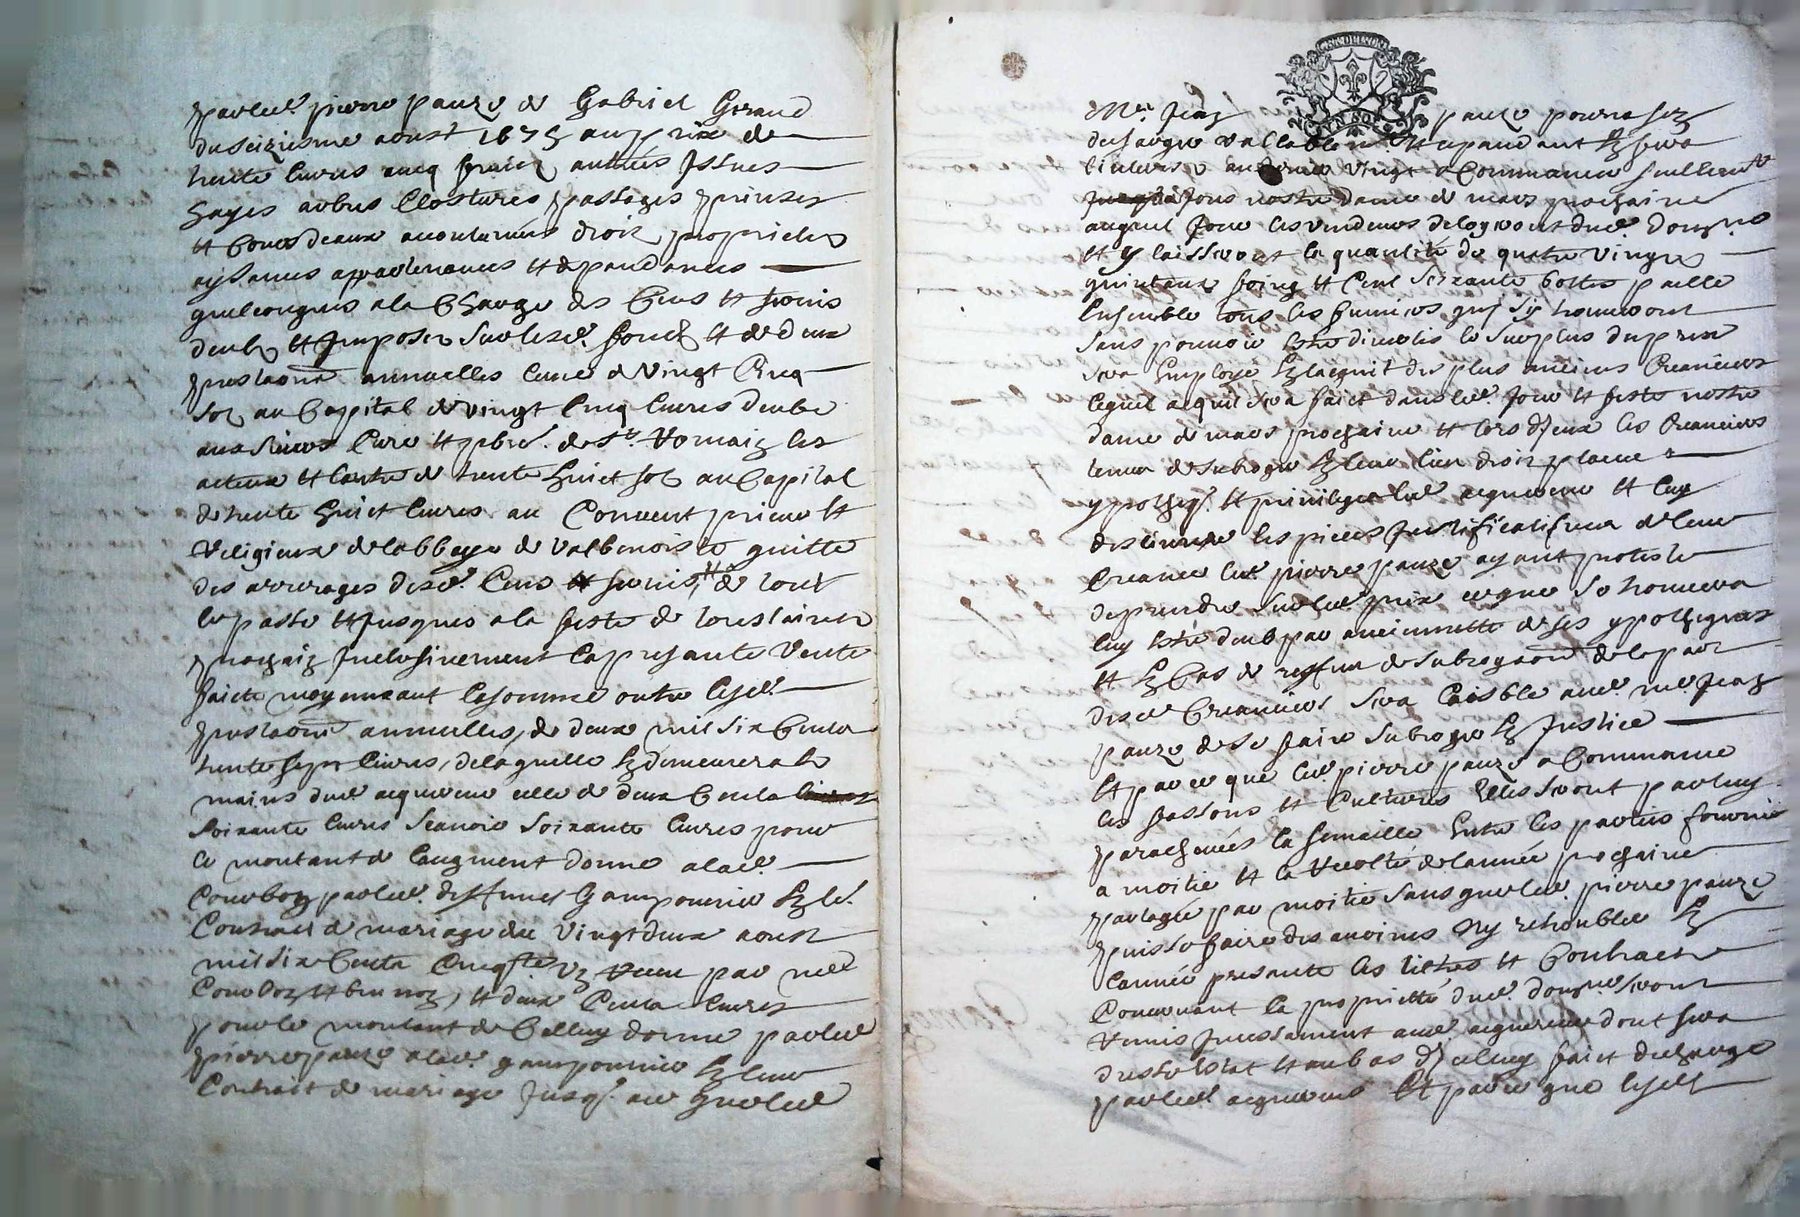 par led. pierre pauze de Gabriel Giraud
du seiziesme aoust 1675 au prix de
trente livres avec fruictz antrées Issues
hayes arbres Clostures passages prinses
et Cours deaux acoutumés droictz proprietes
aysances appartenances et depandances
quelconques a la Charge des Cens et servis
deubz et Imposés sur lesd. fondz et de deux
pentions annuelles lune de Vingt Cinq
solz au Capital de vingt Cinq livres deube
aux sieurs Curé et pbres. de St. Romain les
atteux et lautre de trente huict solz au Capital
de trente huict livres au Convent prieur et
Religieux de labbaye de Valbenoiste quitte
des arrerages desd. Cens et servis, et de tout
le passé et Jusques a la feste de toussaintz
prochain Inclusivement la presante Vente
faicte moyennant la somme outre lesd.
pentions annuelles, de deux mil six Centz
trente sept livres, de laquelle en demeurera ez
mains dud. acquereur celle de deux Centz
soixante livres scavoir soixante livres pour
le montant de laugment donné a lad.
Courbon par led. deffunct Gamponnier en le.
Contract de mariage du Vingt deux aoust
mil six Centz Cinqte un receu par me
Courbon et brunon, et deux Centz livres
pour le montant de Celluy donné par led.
pierre pauze a lad. gamponnier en leur
Contrait de mariage Jusq. a ce que led.
Mre. Jean pauze pourra sen
descharger vallablement et cepandant en sera
linterest au denier vingt a Commancer seullement
Jour nostre dame de mars prochaine
auquel Jour les vendeurs delogeront dud. domayne
et y laisseront la quantité de quatre vingtz
quintaux foing et Cent soixante bottes paille
Ensemble tous les fumiers quy sy trouveront
sans pouvoir Estre divertis le surplus du prix
sera Employé en lacquit des plus anciens Creanciers
lequel acquit sera faict dans led. Jour et feste nostre
dame de mars prochaine et lors dIceux les Creanciers
tenus de subroger en leur lieu droict place
ypotheq. et privilege led. acquereur et luy
deslivrer les pieces Justificatifves de leur
Creance led. pierre pauze ayant protesté
de prendre sur led. prix ce que se trouvera
luy Estre deub par ancienneté de ses ypotheques
et En Cas de reffus de subrogaon de la part
desd. Creanciers sera loisible aud. me Jean
pauze de se faire subroger En Justice
Et parce que led. pierre pauze a Commancé
les fassons et Cultures Elles seront par luy
parachevées la semaille Entre les parties fournie
a moitie et la recolte de lannée prochaine
partagée par moitie sans que led. pierre pauze
puisse faire des avoines Ny retroubler En
lannée presante les tiltres et Contracts
Concernant la proprietté dud. domayne seront
remis Incessament aud. acquereur dont sera
dressé Estat et au bas dIcelluy faict descharge
par led. acquereur Et parce que lesd.